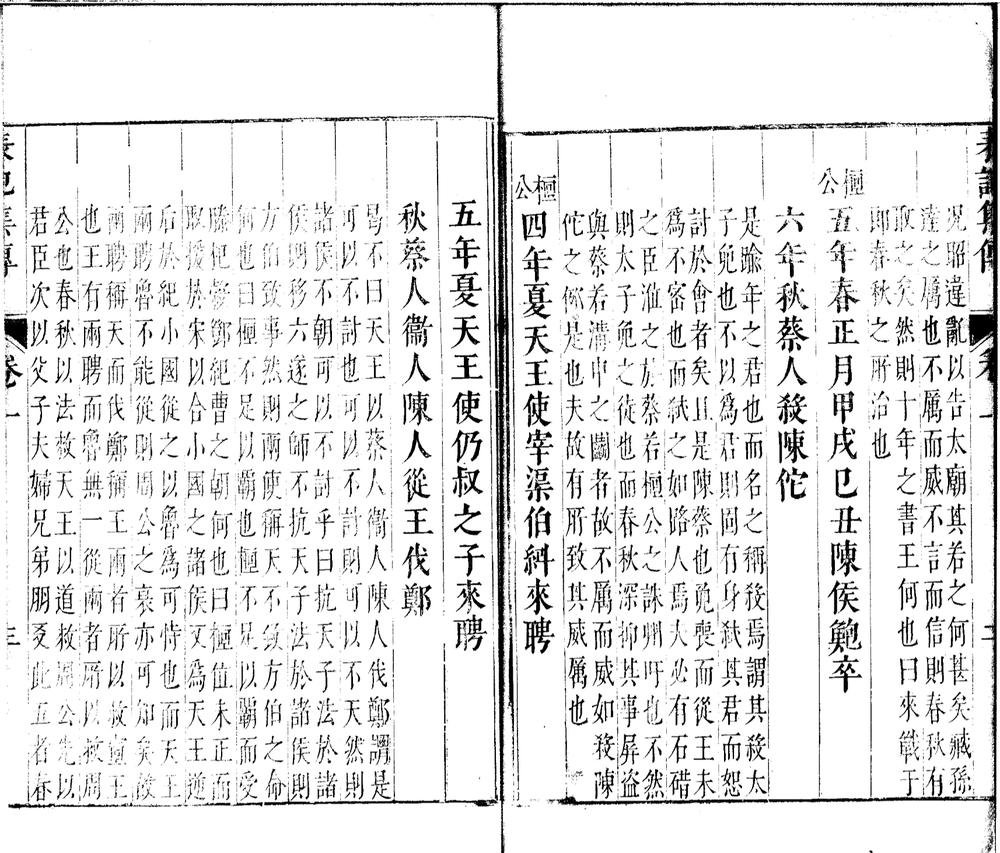 況昭違亂以告太廟其若之何甚矣臧孫
達之厲也不厲而威不言而信則春秋有
取之矣然則十年之書王何也曰來戰于
郎春秋之所治也
桓公
五年春正月甲戌己丑陳侯鮑卒
六年秋蔡人殺陳佗
是踰年之君也而名之稱殺焉謂其殺太
子免也不以為君則固有身弒其君而恕
討於會者矣且是陳蔡也免喪而從王未
為不審也而弒之如路人焉大必有石碏
之臣涖之於蔡若桓公之誅州吁也不然
則太子免之徒也而春秋深抑其事屏盜
與蔡若溝中之鬬者故不厲而威如殺陳
佗之 是也夫故有所致其威厲也
桓公
四年夏天王使宰渠伯糾來聘
五年夏天王使仍叔之子來聘
秋蔡人衞人陳人從王伐鄭
曷不曰天王以蔡人衞人陳人伐鄭謂是
可以不討也可以不討則可以不天然則
諸侯不朝可以不討乎曰抗天子法於諸
侯則移六遂之師不抗天子法於諸侯則
方伯致事然則兩使稱天不 方伯之命
何也曰桓不足以覇也輒不足以覇而受
滕杞 鄧紀曹之朝何也曰桓值未正而
取援於宋以合小國之諸侯又為天王逆
后於紀小國從之以魯為可恃也而天王
兩聘魯不能從則周公之衰亦可知矣故
兩聘稱天而伐鄭稱王兩者所以救 王
也王有兩聘而魯無一從兩者所以救周
公也春秋以法救天王以道救周公先以
君臣次以父子夫婦兄弟朋友此五者春
表記集傳
卷一
二
三